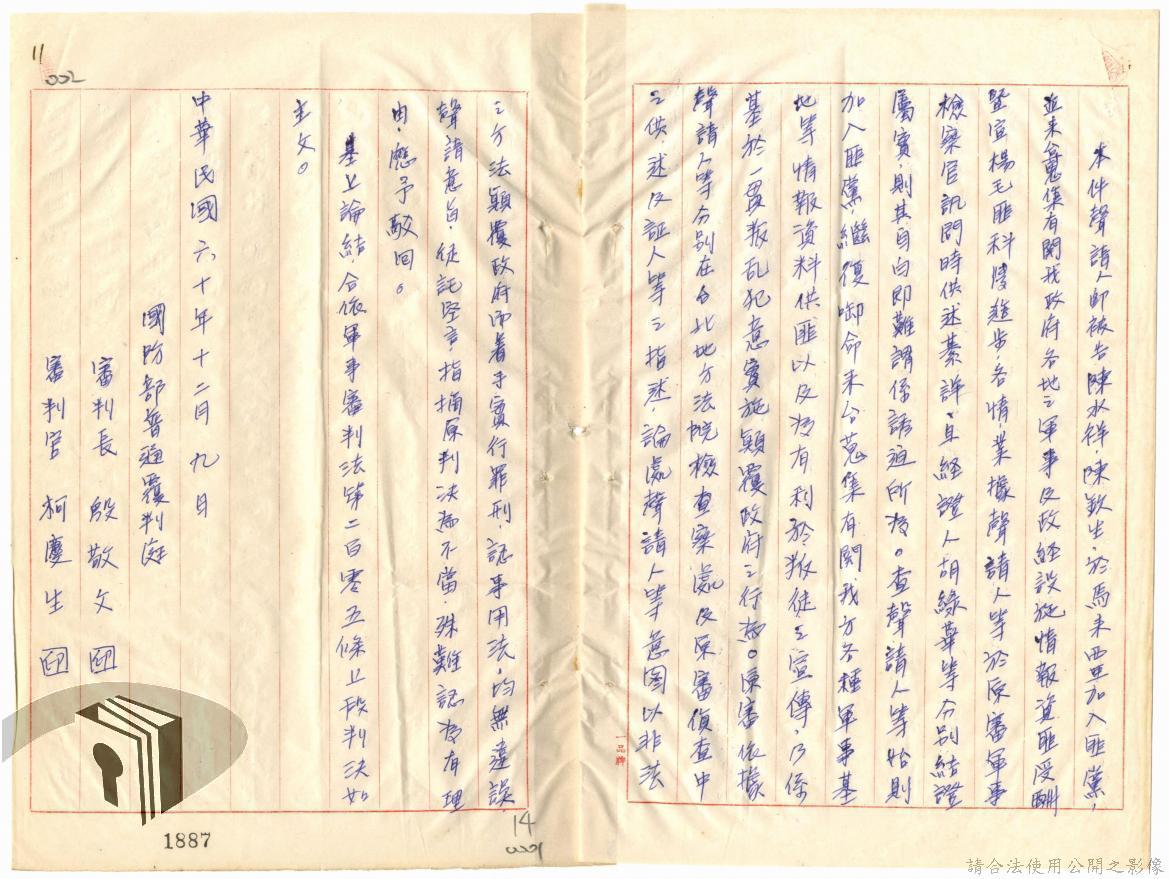 本件聲請人即被告陳水祥、陳欽生、於馬來西亞加入匪黨,
近來蒐集有關我政府各地之軍事及政經設施情報資匪受酬
暨宣揚毛匪科技進步各情,業據聲請人等於原審軍事
檢察官訊問時供述綦詳、且經證人胡綠華等分別結證
屬實,則其自白即難謂係誘迫所為。查聲請人等始則
加入匪黨,繼復啣命來台蒐集有關我方各種軍事基
地等情報資料供匪以及為有利於叛徒之宣傳,乃係
基於一貫叛乱犯意實施顛覆政府之行為。原審依據
聲請人等分別在台北地方法院檢查察處及原審偵查中
之供述及証人等之指述,論處聲請人等意圖以非法
之方法顛覆政府而着手實行罪刑,認事用法,均無違誤
聲請意旨,徒託空言,指摘原判決為不當,殊難認為有理
由,應予駁回。
基上論結,合依軍事審判法第二百零五條上段判決如
主文。
中華民國六十年十二月九日
國防部普通覆判庭
審判長 殷敬文 印
審判官 柯慶生 印
11
002
14
0001
1887
一品牌
請合法使用公開之影像